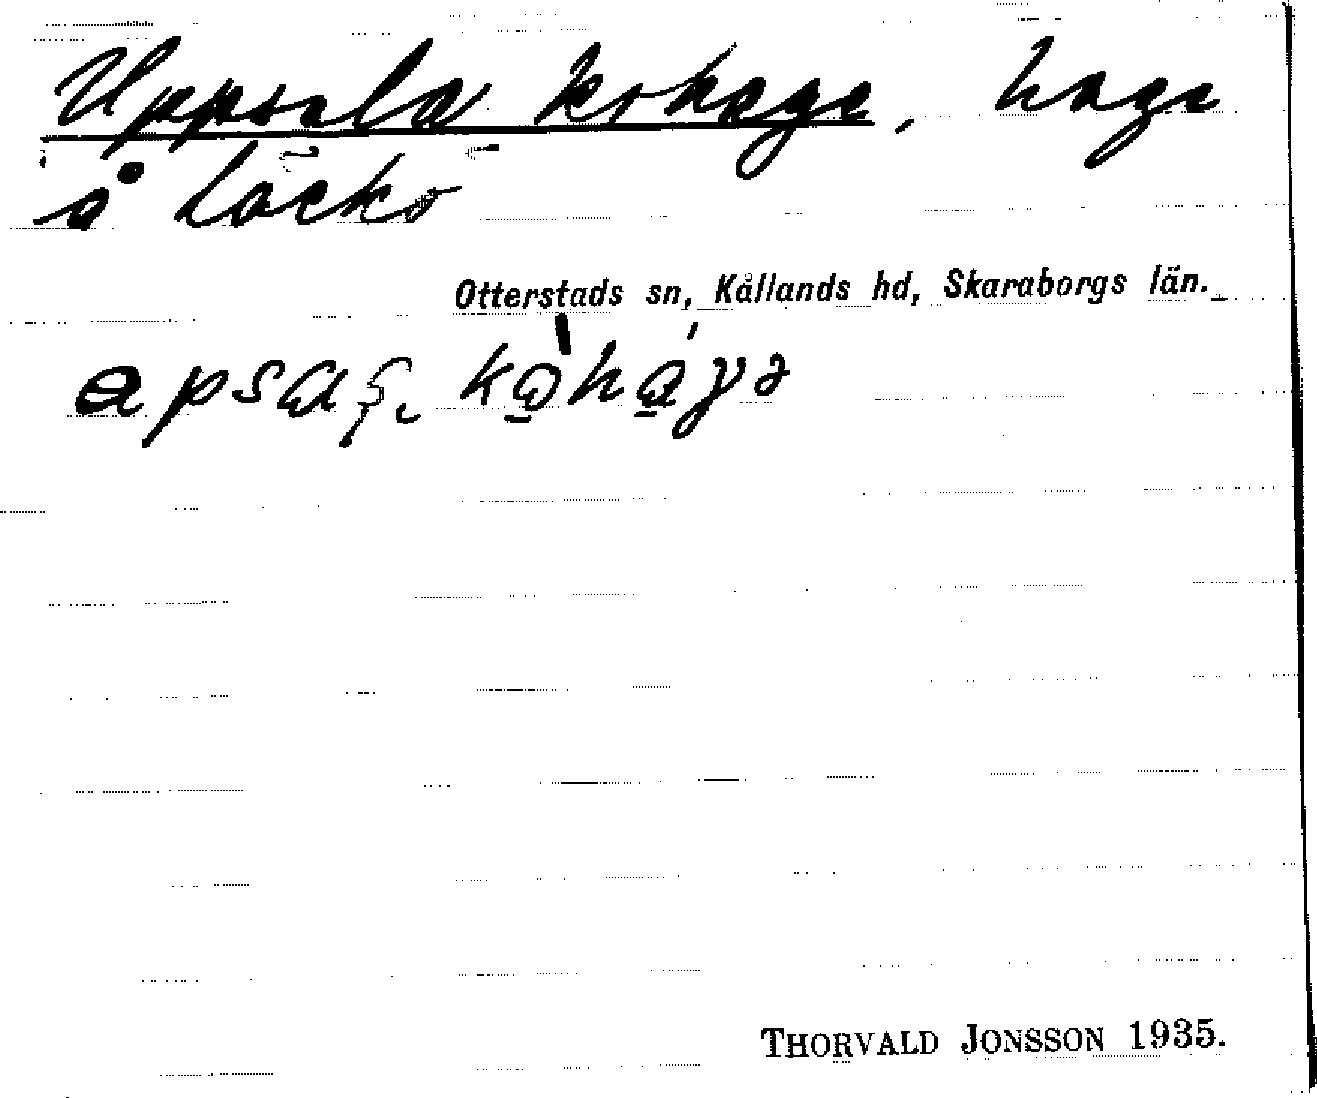 Uppsala kohage, hage
å Läckö
Otterstads sn, Kållands hd, Skaraborgs län.
THORVALD JONSSON 1935.